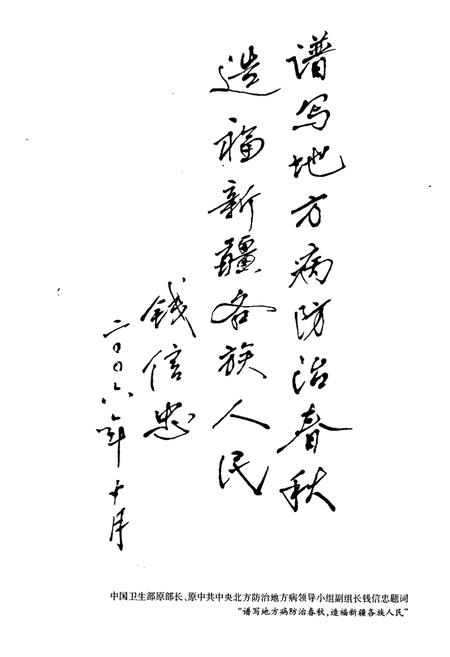 谱写地方病防治春秋
造福新疆各族人民
钱信忠
二〇〇六年十月
中国卫生部原部长、原中共中央北方防治地方病领导小组副组长钱信忠题词
“谱写地方病防治春秋，造福新疆各族人民”